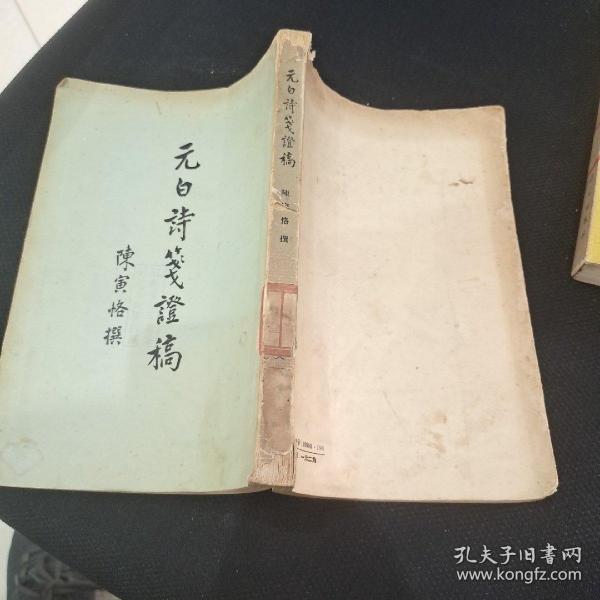 元白詩箋證稿
陳寅恪撰
元白詩箋證稿
陳寅恪撰
孔夫子旧书网
www.kongfz.com